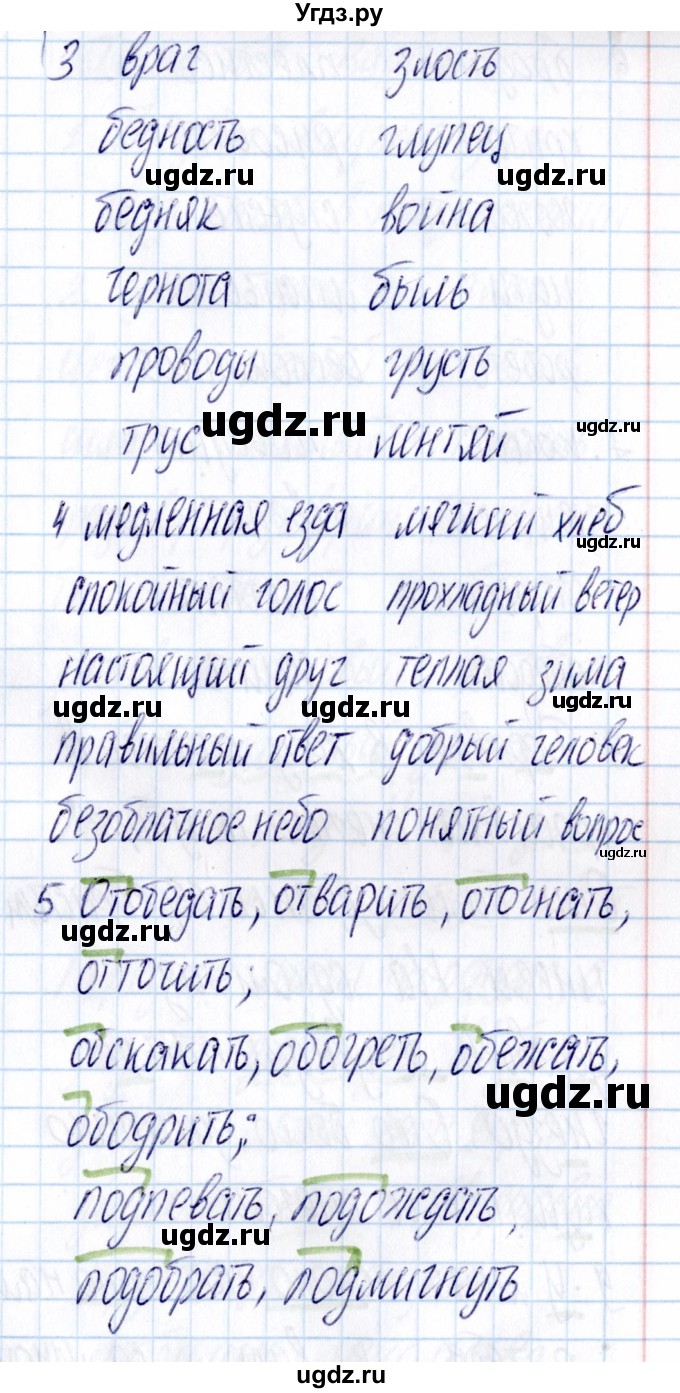 Угдз.ру
3 враг злость
бедность глупец
ugdz.ru ugdz.ru
бедняк война
чернота быль
проводы грусть
ugdz.ru ugdz.ru
трус лентяй
4 медленная езда мягкий хлеб
ugdz.ru
спокойный голос прохладный ветер
настоящий друг теплая зима
ugdz.ru ugdz.ru ugdz.ru
правильный ответ добрый человек
безоблачное небо понятный вопрос
ugdz.ru
5 Отобедать, отварить, отогнать,
ugdz.ru
отточить;
обскакать, обогреть, обежать,
ugdz.ru
ободрить;
подпевать, подождать,
ugdz.ru
подобрать, подмигнуть
ugdz.ru